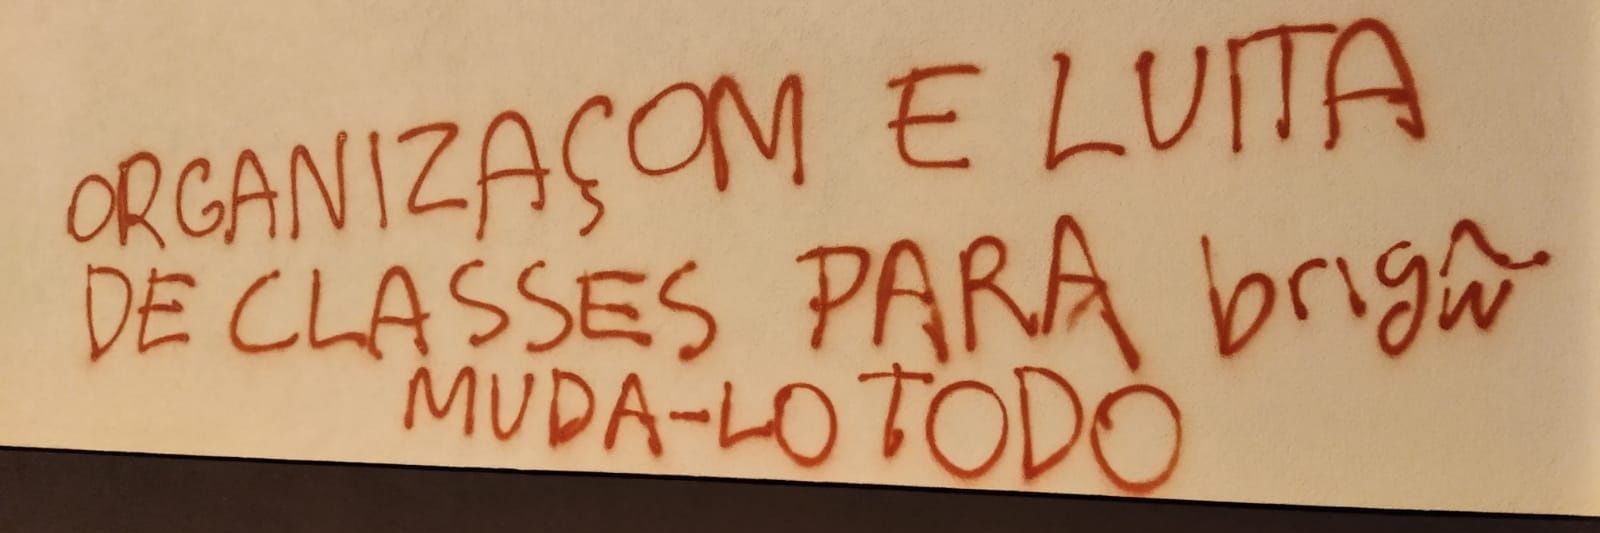 ORGANIZAÇOM E LUITA
DE CLASSES PARA
MUDA-LO TODO